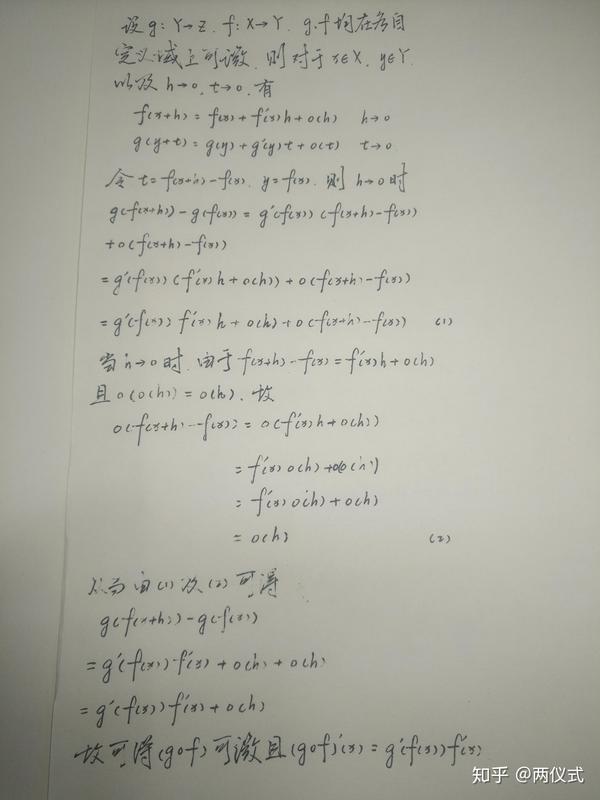 设 g: Y→Z. f: X→Y, g.f 均在各自
定义域上可微, 则对于 x∈X, y∈Y.
以及 h→0, t→0, 有
f(x+h) = f(x) + f'(x)h + o(h) h→0
g(y+t) = g(y) + g'(y)t + o(t) t→0
令 t = f(x+h) - f(x), y = f(x), 则 h→0 时
g(f(x+h)) - g(f(x)) = g'(f(x)) (f(x+h) - f(x))
+ o(f(x+h) - f(x))
= g'(f(x)) (f'(x)h + o(h)) + o(f(x+h) - f(x))
= g'(f(x)) f'(x)h + o(h) + o(f(x+h) - f(x)) (1)
当 h→0 时, 由于 f(x+h) - f(x) = f'(x)h + o(h)
且 o(o(h)) = o(h), 故
o(f(x+h) - f(x)) = o(f'(x)h + o(h))
= f'(x)o(h) + o(o(h))
= f'(x)o(h) + o(h)
= o(h) (2)
从而由(1)及(2)可得
g(f(x+h)) - g(f(x))
= g'(f(x)) f'(x) + o(h) + o(h)
= g'(f(x)) f'(x) + o(h)
故可得(g∘f)可微且(g∘f)'(x) = g'(f(x)) f'(x)
知乎 @两仪式